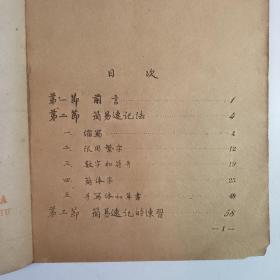 目 次
第一節 前言 1
第二節 簡易速記法 4
一. 縮寫 4
二. 限用繁字 12
三. 數字和符号 19
四. 简体字 23
五. 手写体和草書 48
第三節 簡易速記的練習 58
—1—